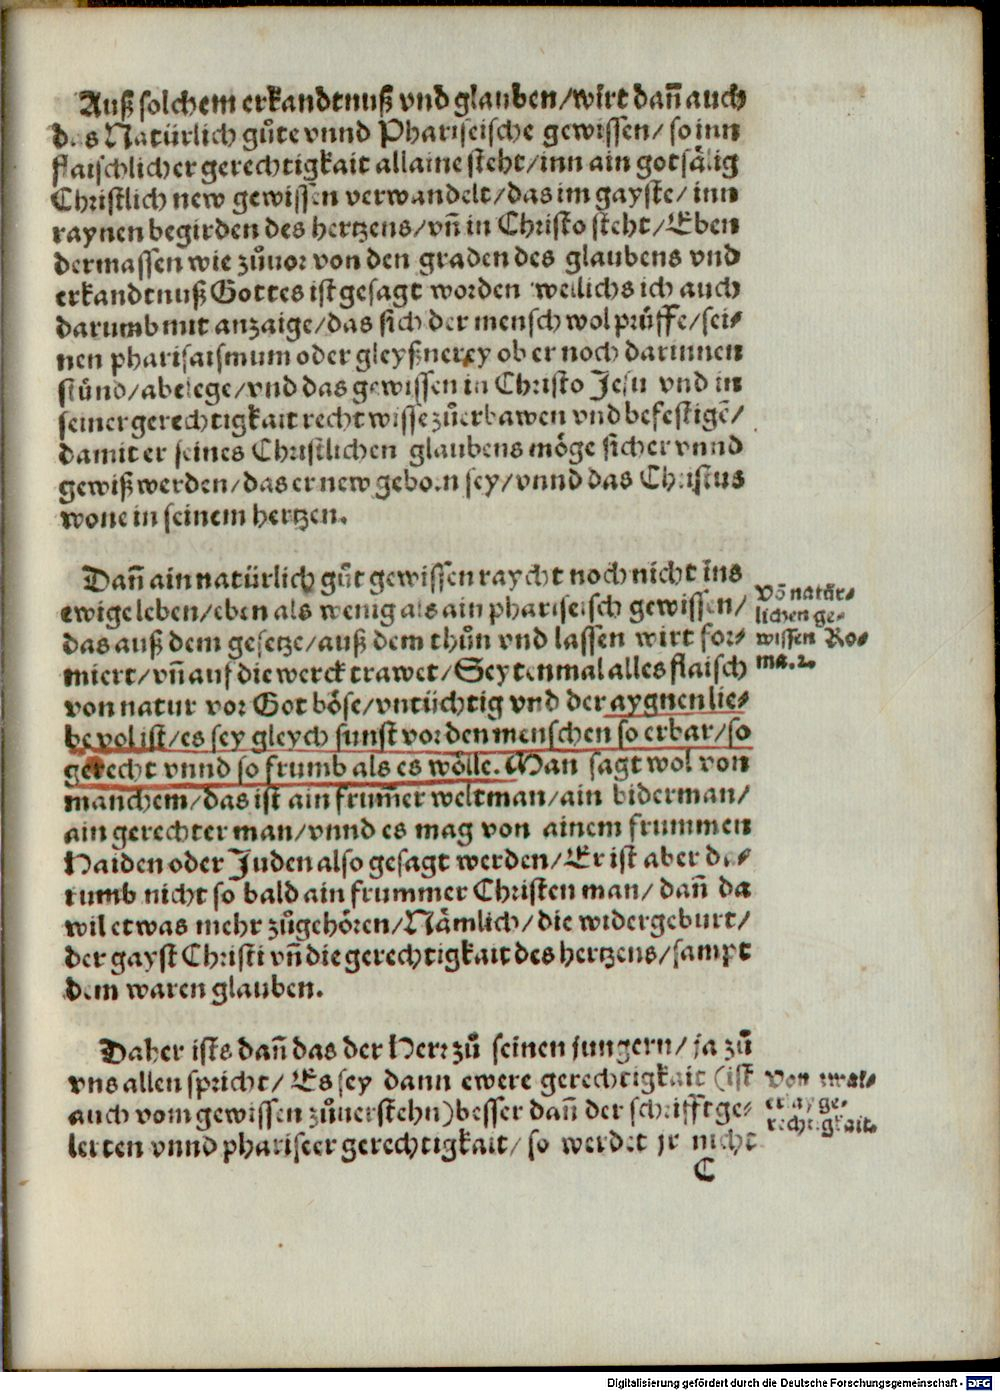 Auß solchem erkandtnuß vnd glauben/wirt dañ auch
das Natürlich gůte vnnd Phariseische gewissen/ so inn
flaischlicher gerechtigkait allaine steht/inn ain gotsälig
Christlich new gewissen verwandelt/das im gayste/ inn
raynen begirden des hertzens/vñ in Christo steht/Eben
dermassen wie zůuor von den graden des glaubens vnd
erkandtnuß Gottes ist gesagt worden welichs ich auch
darumb mit anzaige/das sich der mensch wol prüffe/sei⸗
nen pharisaismum oder gleyßnerey ob er noch darinnen
stünd/ablege/vnd das gewissen in Christo Jesu vnd in
seiner gerechtigkait recht wisse zůerbawen vnd befestigē/
damit er seines Christlichen glaubens möge sicher vnnd
gewiß werden/das er new geborn sey/vnnd das Christus
wone in seinem hertzen.
Dañ ain natürlich gůt gewissen raycht noch nicht ins
ewige leben/eben als wenig als ain phariseisch gewissen/
das auß dem gesetze/auß dem thůn vnd lassen wirt for⸗
miert/vñ auf die werck trawet/Seytenmal alles flaisch
von natur vor Got böse/vntüchtig vnd der aygnen lie⸗
be vol ist/es sey gleych sunst vor den menschen so erbar/so
gerecht vnnd so frumb als es wölle. Man sagt wol von
manchem/das ist ain frum̄er weltman/ain biderman/
ain gerechter man/vnnd es mag von ainem frummen
Haiden oder Juden also gesagt werden/Er ist aber da⸗
rumb nicht so bald ain frummer Christen man/ dañ da
wil etwas mehr zůgehören/Nämlich/die widergeburt/
der gayst Christi vñ die gerechtigkait des hertzens/sampt
dem waren glauben.
Võ natür⸗
lichen ge⸗
wissen Ro⸗
ma.2.
Daher ists dañ das der Herr zů seinen jungern/ ja zů
vns allen spricht/ Es sey dann ewere gerechtigkait (ist
auch vom gewissen zůuerstehn)besser dañ der schrifftge⸗
lerten vnnd phariseer gerechtigkait/ so werdet jr nicht
Von zwai⸗
erlay ge⸗
rechtigkait.
C
Digitalisierung gefördert durch die Deutsche Forschungsgemeinschaft - DFG